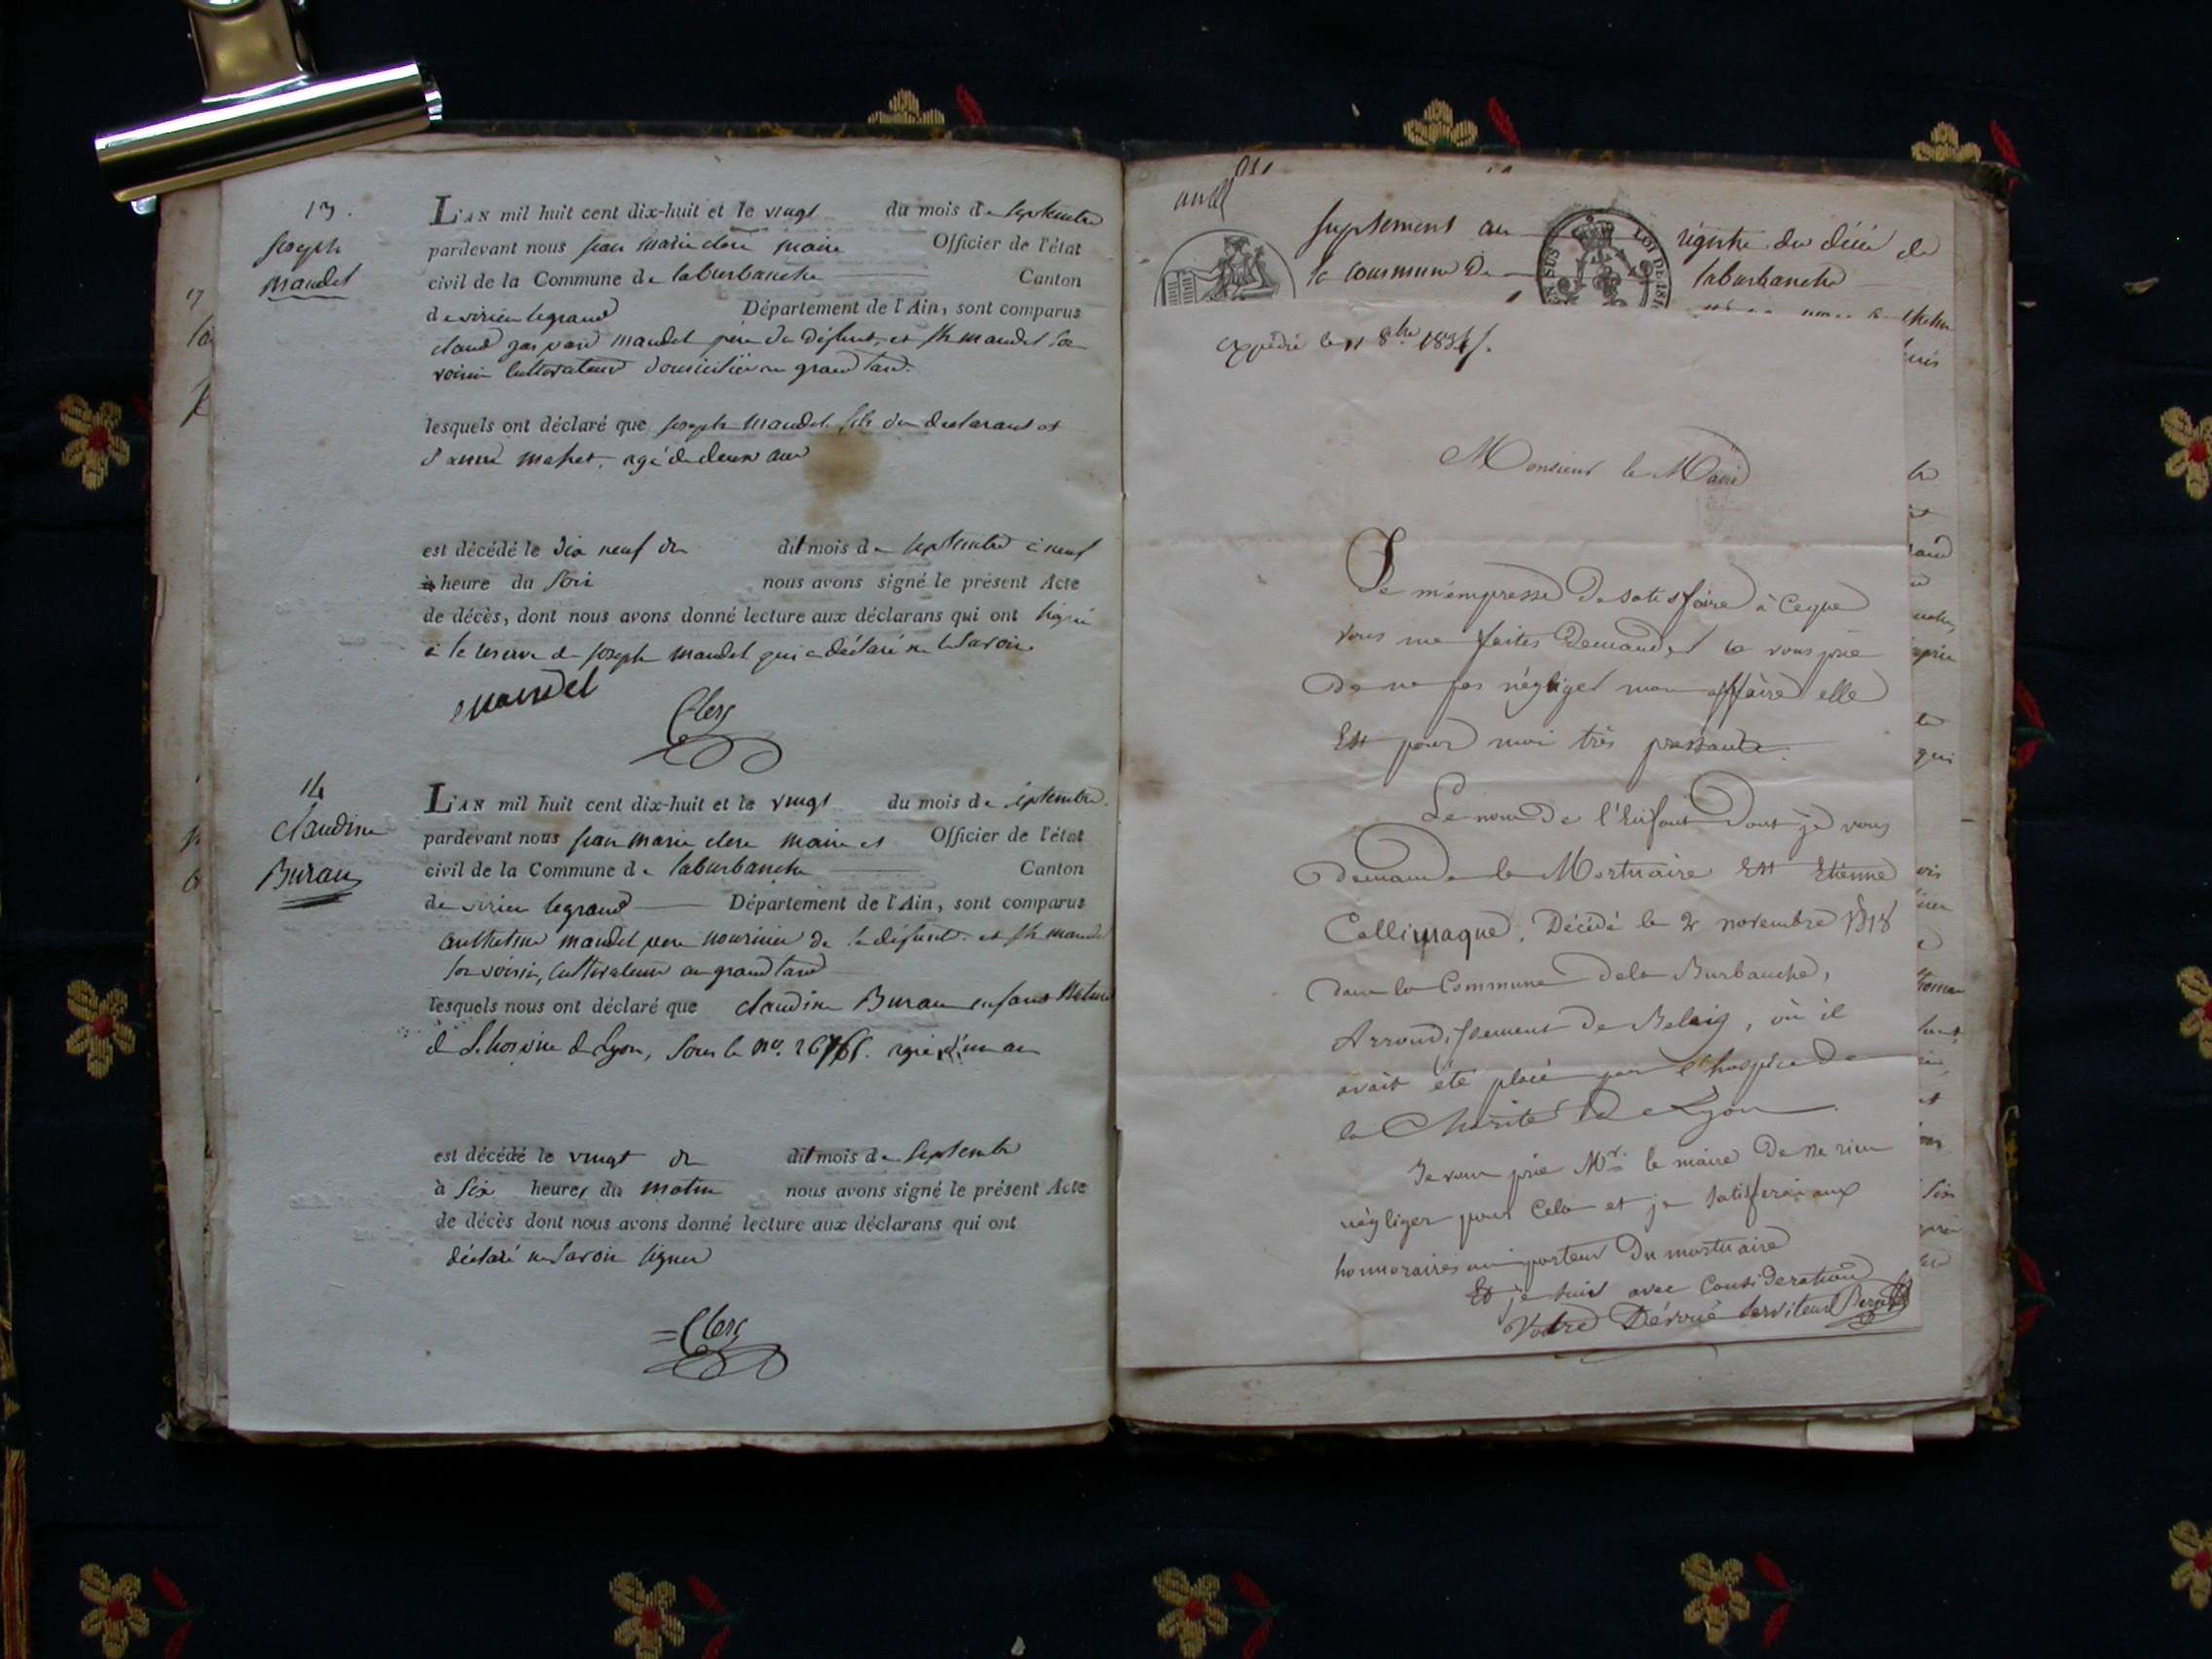 13.
Joseph
Mandel
L'AN mil huit cent dix-huit et le vingt du mois de septembre
pardevant nous jean marie clerc maire Officier de l'état
civil de la Commune de laburbanche Canton
de virieu legrand Département de l'Ain, sont comparus
claude gaspard mandel père du défunt, et jh mandel son
voisin cultivateurs domiciliés au grand tard.
lesquels ont déclaré que joseph mandel fils du declarant et
d'anne mahet, agé de deux ans
est décédé le dix neuf du dit mois de septembre à neuf
heure du soir nous avons signé le présent Acte
de décès, dont nous avons donné lecture aux déclarans qui ont signé
à la reserve de joseph mandel qui a déclaré ne le savoir
mandel
Clerc
14
claudine
Buran
L'AN mil huit cent dix-huit et le vingt du mois de septembre
pardevant nous jean marie clerc maire et Officier de l'état
civil de la Commune de laburbanche Canton
de virieu legrand Département de l'Ain, sont comparus
anthelme mandel pere nouricier de la défunte et jh mandel
son voisin, cultivateurs au grand tard
lesquels nous ont déclaré que claudine Buran enfant
de L'hospice de Lyon, sous le no. agée d'un an
est décédé le vingt du dit mois de septembre
à six heures du matin nous avons signé le présent Acte
de décès dont nous avons donné lecture aux déclarans qui ont
déclaré ne savoir signer
Clerc
suplement au registre du décès de
la commune de laburbanche
LOI DE 181
EN SUS
expédié le 11 8bre
Monsieur le Maire
Je m'empresse de satisfaire à ceque
vous me faites demander et vous prie
de ne pas négliger mon affaire elle
Est pour moi très pressante.
Le nom de l'Enfant dont je vous
demande le Mortuaire Est Etienne
Callimaque. Décédé le 2 novembre 1818
dans la Commune dela Burbanche,
Arrondissement de Belley, où il
avait été placé par l'hospice de
la Charité de Lyon.
Je vous prie Mr. le maire de ne rien
négliger pour cela et je satisferai aux
honnoraires au porteur du mortuaire
Et je suis avec Consideration
Votre Dévoué serviteur